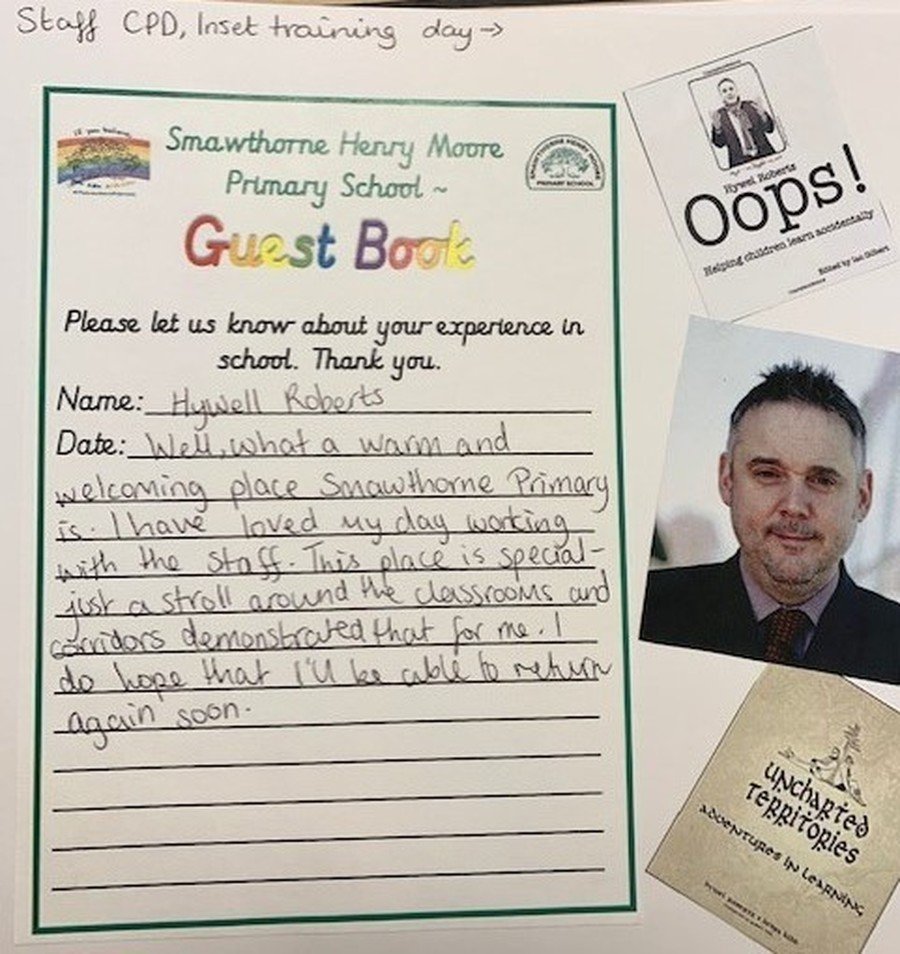 Staff CPD, Inset training day →
If you believe
Smawthorne Henry Moore
Primary School ~
SMAWTHORNE HENRY MOORE
PRIMARY SCHOOL
Guest Book
Please let us know about your experience in
school. Thank you.
Name: Hywell Roberts
Date: Well, what a warm and
welcoming place Smawthorne Primary
is. I have loved my day working
with the staff. This place is special -
just a stroll around the classrooms and
corridors demonstrated that for me. I
do hope that I'll be able to return
again soon.
Hywel Roberts
Oops!
Helping children learn accidentally
Edited by Ian Gilbert
UNCHARTED
TERRITORIES
ADVENTURES IN LEARNING